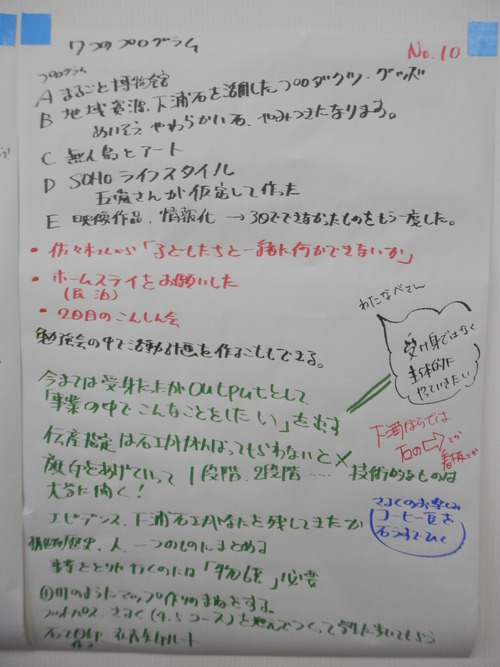 7つのプログラム
No.10
プログラム
A まるごと博物館
B 地域資源、下浦石を活用したプロダクツ・グッズ
めいそう やわらかい石、やみつきになりまする。
C 無人島とアート
D SOHO ライフスタイル
五嶌さんが仮定して作った
E 映像作品、情報化 → 30でできなかったものをもう一度した。
・佐々木さんから「子どもたちと一緒に何ができないか」
・ホームステイをお願いした
(民泊)
・2日目のこんしん会
勉強会の中で活動計画を作ることもできる。
わたなべさん
受け身ではなく
主体的に
やっていきたい
今までは受身だったがoutputとして
「事業の中でこんなことをしたい」を出す
下浦ならでは
石の
とか
看板とか
伝産指定は石工ががんばってもらわないと×
旗をあげていって1段階、2段階…… 技術的なものは
大学に聞く!
さるくのお楽しみ
コーヒー豆を
石うすでひく
エビデンス、下浦石工がなにを残してきたか
歴史、人、一つのものにまとめる
事をとりに行くのには「物語」必要
川のようにマップ作りのまねをする。
フットパス、さるく(9.5コース)と組んでつくって学生に歩いてもらう
ルート